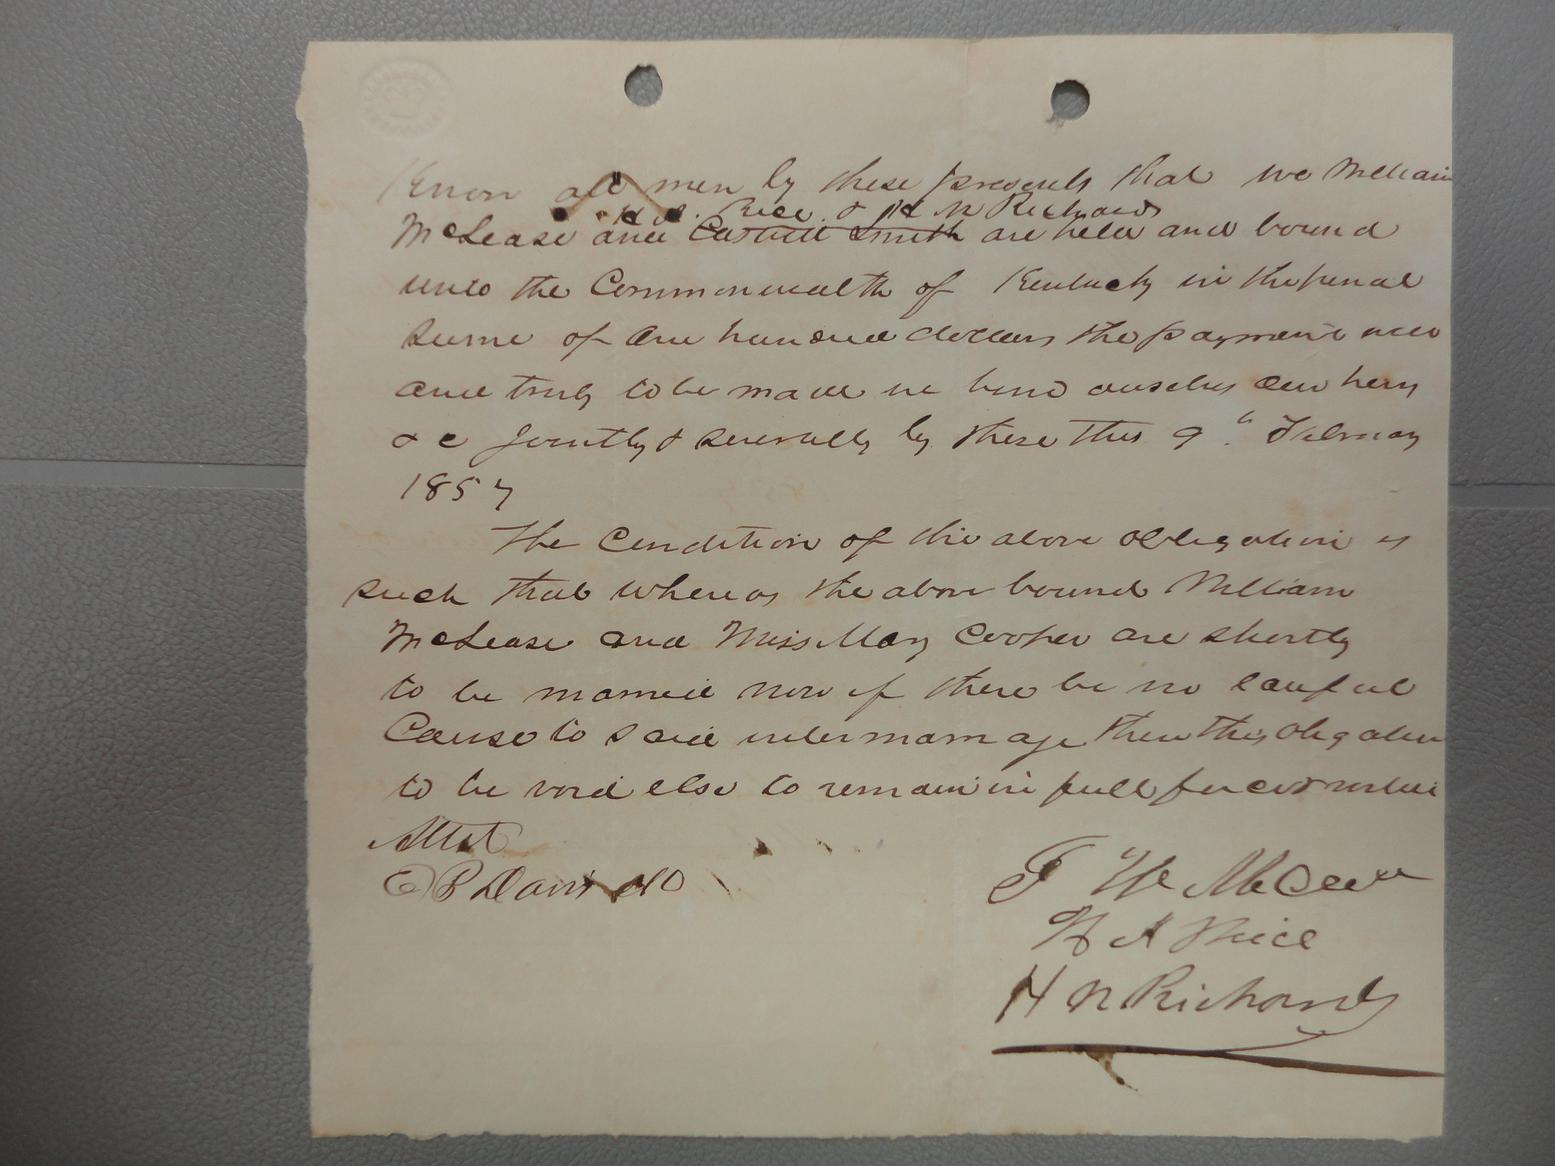 Know all men by these presents that we William
H A. Rice & H N Richards
McLease and Smith are held and bound
unto the Commonwealth of Kentucky in the penal
sume of one hundred dollars the payment well
and truly to be made we bind ourselves our heirs
&c jointly & severally by these this 9" February
1857
The Condition of the above obligation is
such that whereas the above bound William
McLease and Miss Mary Cooper are shortly
to be married now if there be no lawful
Cause to said intermarriage then this obligation
to be void else to remain in full force & virtue
Attest
E P Davis
W
H A Rice
H N Richards